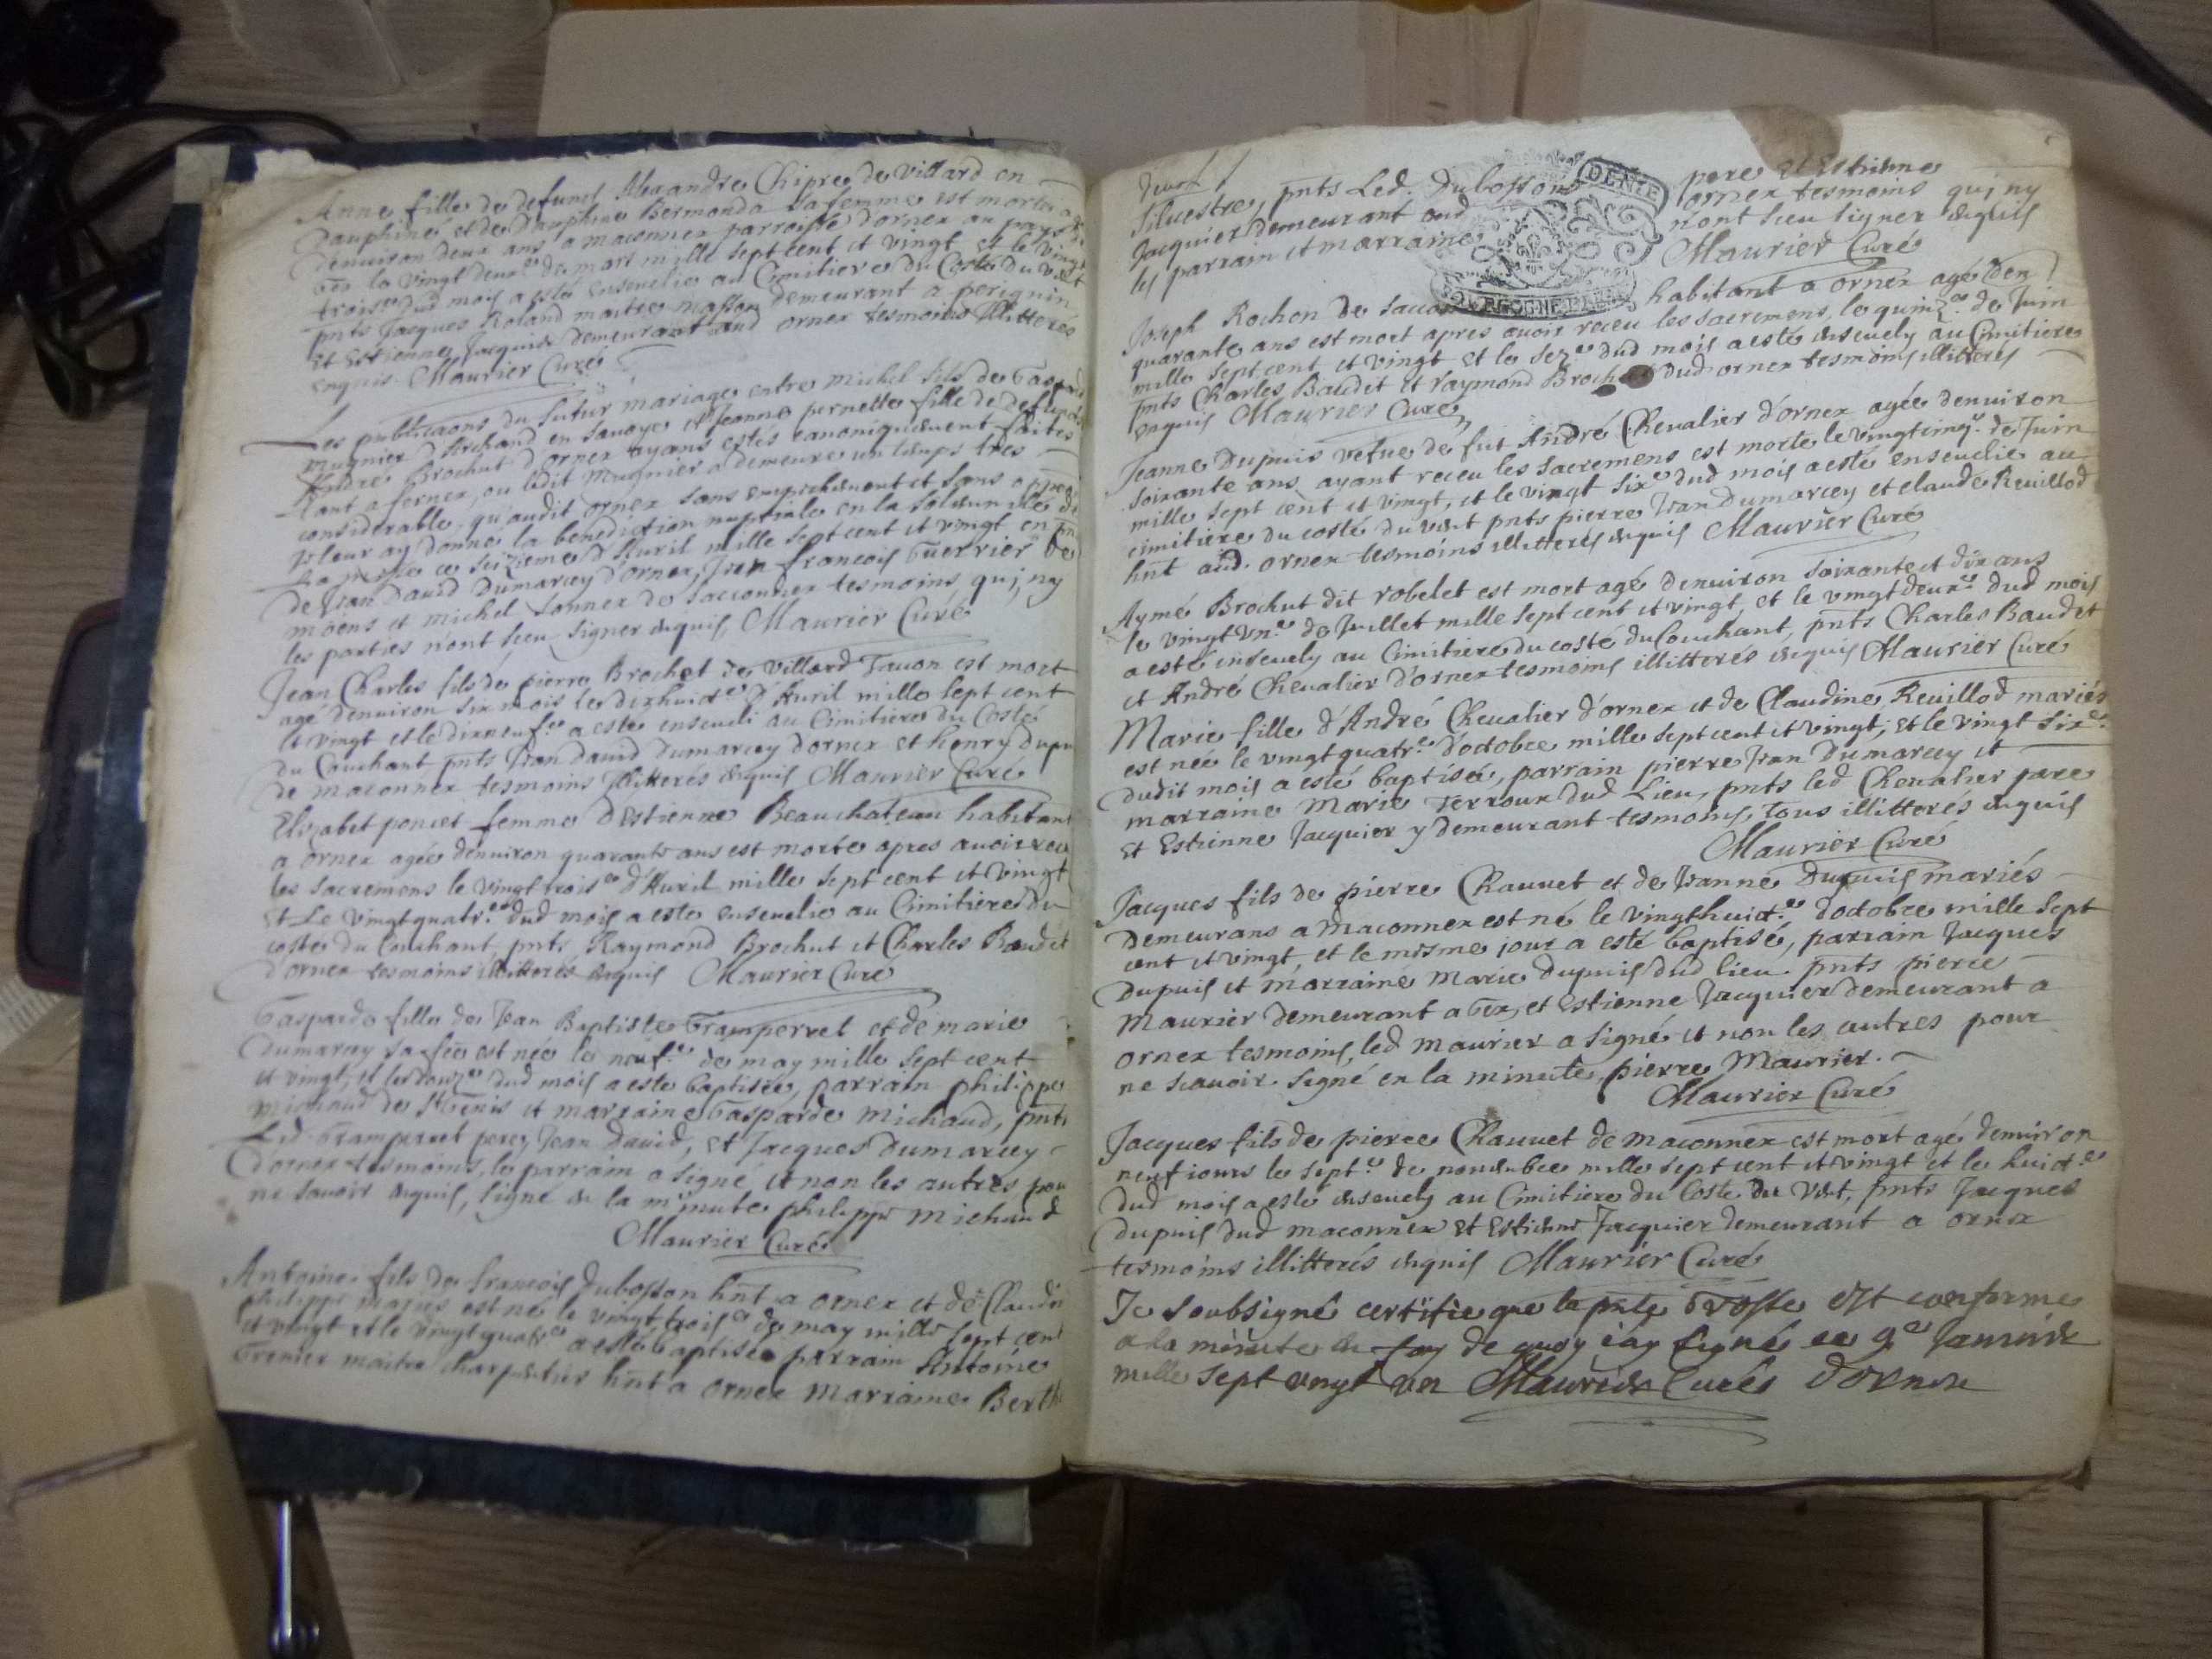 Anne fille de defunct Alexandre Chipre de Villard en
Dauphiné et de Dauphine Bermonda sa femme est morte
denuiron deux ans a maconnex parroisse dornex au pays de
Gex le vingt deux.e de mars mille sept cent et vingt et le vingt
trois.e dud mois a esté enseuelie au Cimitiere du Costé du vent
pnts Jacques Roland maitre masson demeurant a perignin
et Estienne Jacquier demeurant aud ornex tesmoins illitterés
enquis. Maurier Curé
Les publicaons du futur mariage entre michel fils de
mugnier en sauoye et Jeanne pernette fille de defunct
André Brochut d'ornex ayans estés canoniquement faites
tant a fernex, ou ledit mugnier a demeuré un temps tres
considerable, qu'audit ornex sans empeschement et sans
Je leur ay donné la benediction nuptiale en la solemnité de
la messe ce seizieme d'Auril mille sept cent et vingt en
de Jean Dauid Dumarcey d'ornex, Jean francois Guerrier de
moens et michel Sonnex de sacconnex tesmoins qui, ny
les parties n'ont sceu signer enquis, Maurier Curé
Jean Charles fils de pierre Brochet de Villard Tacon est mort
agé denuiron six mois le dixhuict.e d'Auril mille sept cent
et vingt et le dixneuf.e a esté enseueli au Cimitiere du Costé
du Couchant pnts Jean Dauid Dumarcey dornex et henry
de maconnex tesmoins illitterés enquis Maurier Curé
Elizabet poncet femme d'Estienne Beauchateau habitant
a ornex agée denuiron quarante ans est morte apres auoir receu
les sacremens le vingt trois.e d'Auril mille sept cent et vingt
et Le vingt quatr.e dud mois a esté enseuelie au Cimitiere du
costé du Couchant pnts Raymond Brochut et Charles Baudet
d'ornex tesmoins illitterés enquis Maurier Curé
Gasparde fille de Jean Baptiste Gramperret et de marie
Dumarcey sa fee est née le neuf.e de may mille sept cent
et vingt, et le douz.e dud mois a esté baptisée, parrain philippe
michaud de St Genis et marraine Gasparde michaud, pnts
Led. Gramperret pere, Jean Dauid, et Jacques Dumarcey
d'ornex tesmoins, le parrain a signé et non les autres pour
ne sauoir enquis, signé en la minute philippe michaud
Maurier Curé
Antoine fils de francois Dubosson hnt a ornex et de Claudine
philippe mariés est né le vingt trois.e de may mille sept cent
et vingt et le vingt quatr.e a esté baptisé parrain Antoine
Grenier maitre charpentier hnt a ornex marraine Berthe
Siluestre, pnts Led. Dubosson pere et Estienne
Jacquier demeurant aud ornex tesmoins qui ny
les parrain et marraine n'ont sceu signer enquis
DENIE
Maurier Curé
Joseph Rochon de habitant a ornex agé den
quarante ans est mort apres auoir receu les sacremens, le quinz.e de Juin
mille sept cent et vingt et le sez.e dud mois a esté enseuely au Cimitiere
pnts Charles Baudet et raymond dud ornex tesmoins illitterés
enquis Maurier Curé
Jeanne Dupuis vefue de fut André Cheualier d'ornex agée denuiron
soixante ans, ayant receu les sacremens est morte le vingtcinq.e de Juin
mille sept cent et vingt, et le vingt six.e dud mois a esté enseuelie au
cimitiere du costé du vent pnts pierre Jean Dumarcey et claude Reuillod
hnt aud. ornex tesmoins illitterés enquis Maurier Curé
Aymé Brochut dit robelet est mort agé denuiron soixante et dix ans
le vingt vn.e de Juillet mille sept cent et vingt, et le vingt deux.e dud mois
a esté enseuely au Cimitiere du costé du Couchant, pnts Charles Baudet
et André Cheualier d'ornex tesmoins illitterés enquis Maurier Curé
Marie fille d'André Cheualier d'ornex et de Claudine Reuillod mariés
est née le vingt quatr.e d'octobre mille sept cent et vingt, et le vingt six.e
dudit mois a esté baptisée, parrain pierre Jean Dumarcey et
marraine Marie Terroux dud Lieu, pnts led Cheualier pere
et Estienne Jacquier y demeurant tesmoins, tous illitterés enquis
Maurier Curé
Jacques fils de pierre Chauuet et de Jeanne Dupuis mariés
demeurans a Maconnex est né le vingthuict.e d'octobre mille sept
cent et vingt et le mesme jour a esté baptisé, parrain Jacques
Dupuis et marraine Marie Dupuis dud lieu. pnts pierre
Maurier demeurant a Gex, et Estienne Jacquier demeurant a
ornex tesmoins, led maurier a signé et non les autres pour
ne scauoir. signé en la minute pierre Maurier.
Maurier Curé
Jacques fils de pierre Chauuet de maconnex est mort agé denuiron
neuf iours le sept.e de nouembre mille sept cent et vingt et le huict.e
dud mois a esté enseuely au Cimitiere du Costé du vent, pnts Jacques
Dupuis dud maconnex et Estienne Jacquier demeurant a ornex
tesmoins illitterés enquis Maurier Curé
Je soubsigné certifie que la pnte Grosse est conforme
a la minute en foy de quoy iay signé ce 9e Januier
mille sept vingt vn Maurier Curés Dornex